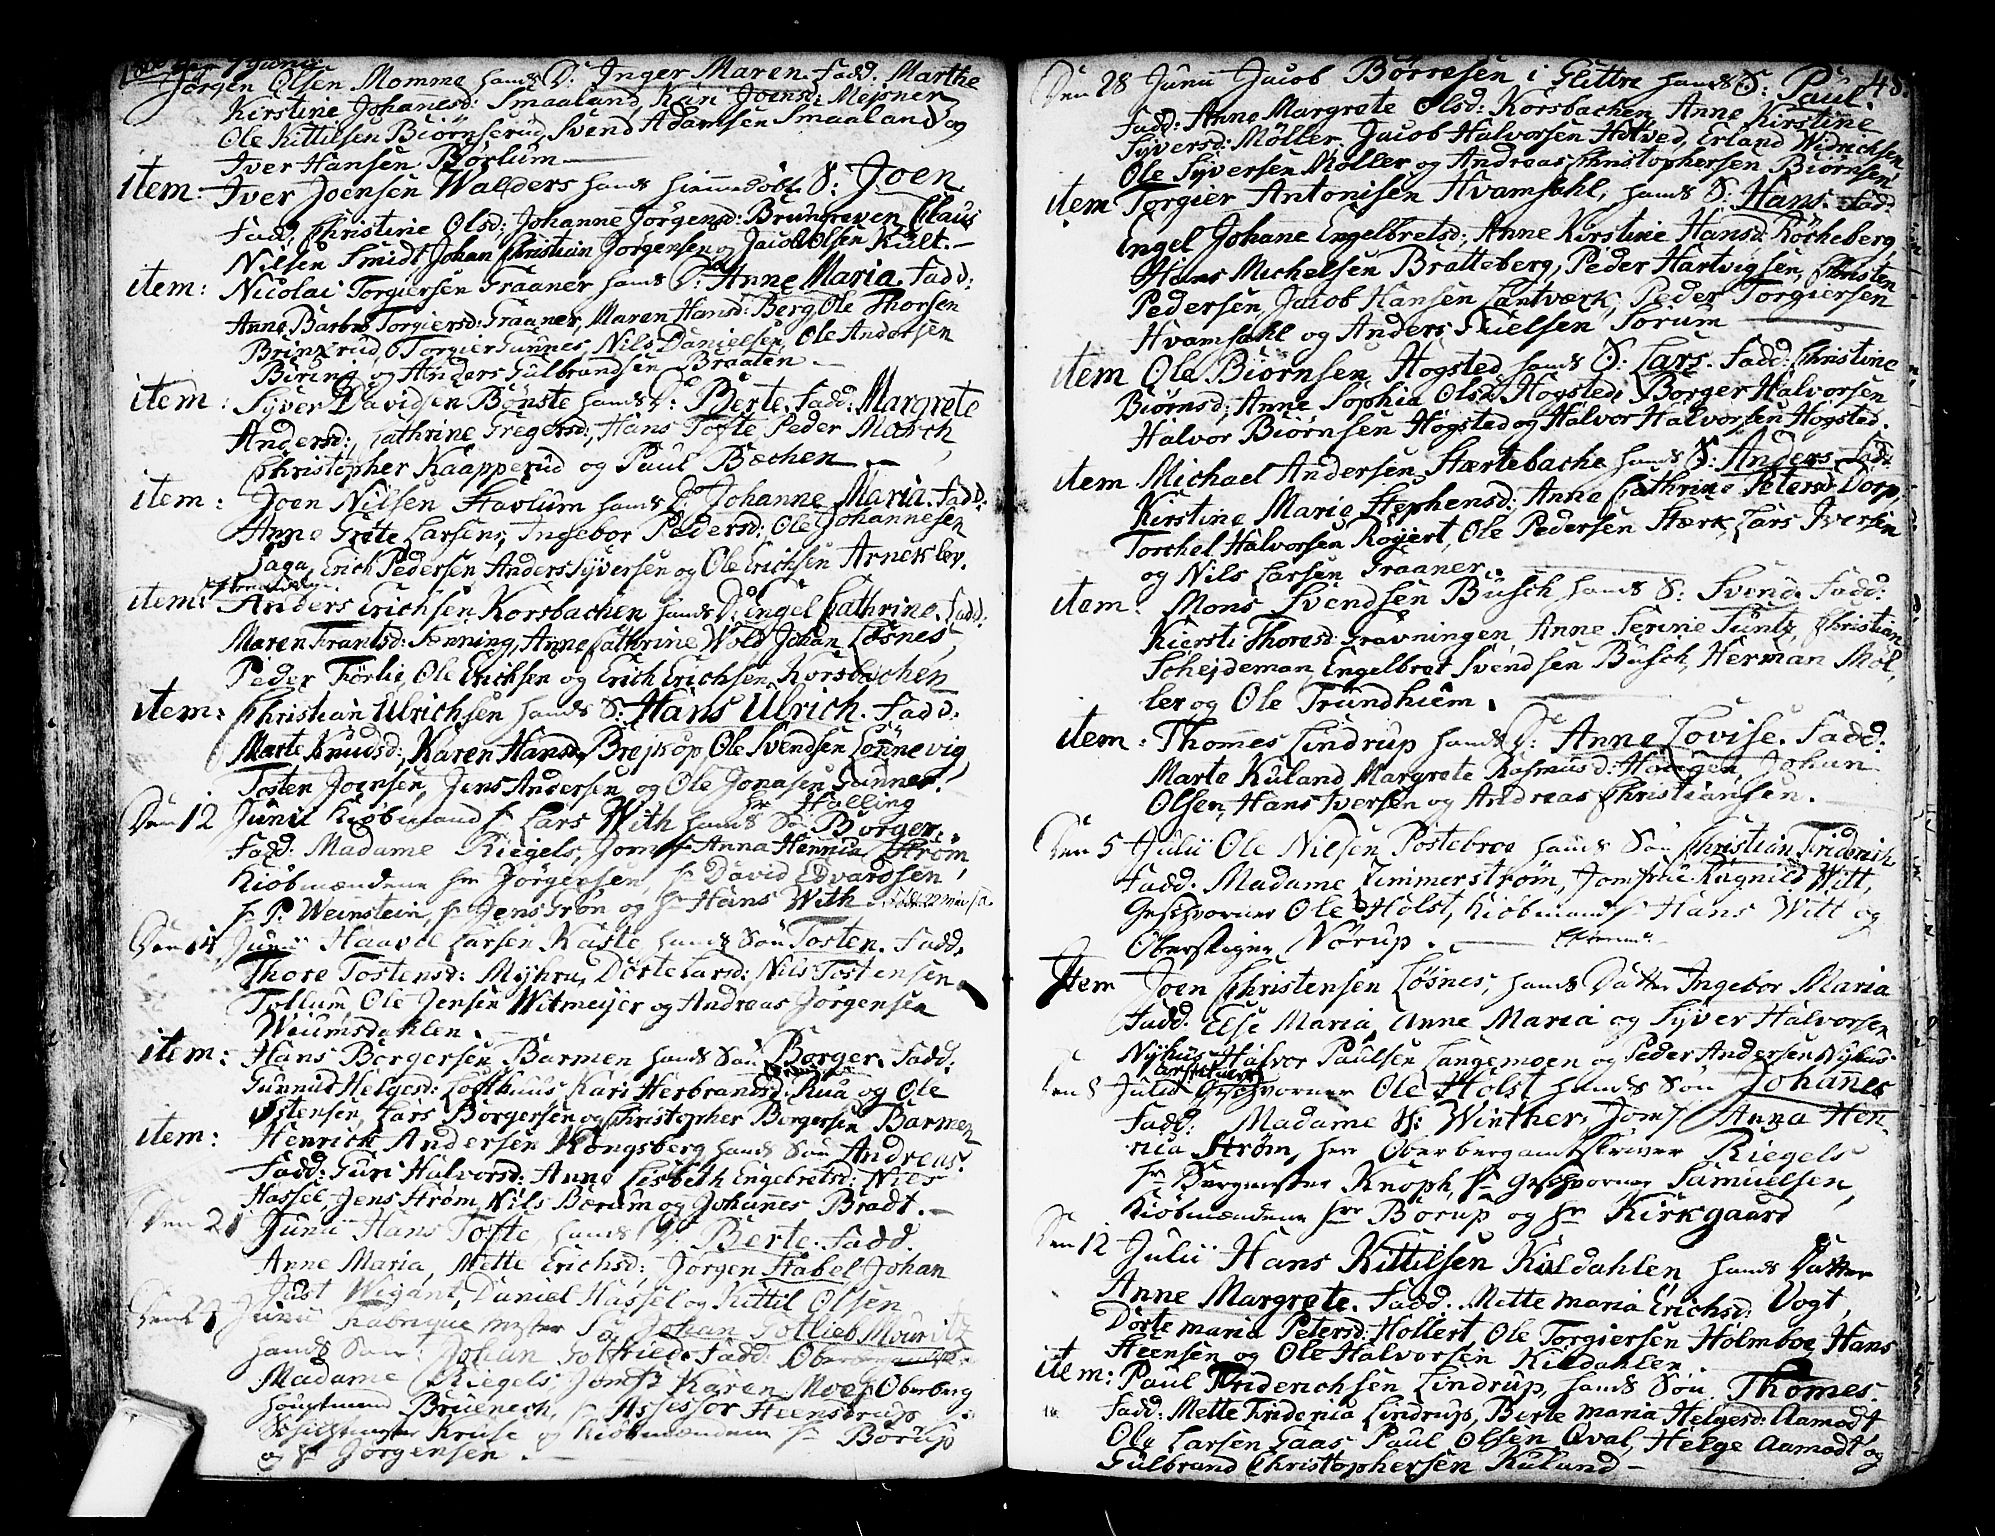 Jørgen Olsen Momme hands D: Inger Maren. Fadd. Marthe
Kirstine Johanesd: Smaaland, Kari Joensd: Mejsner
Ole Kittilsen Biørnserud, Svend Adamsen Smaaland og
Iver Hansen Børlum
item. Iver Joensen Walders hands hiemmedøbt S: Joen
Fadd. Christine Olsd: Johanne Jørgensd: Brungraven Claus
Nilsen Smidt Johan Christian Jørgensen og Jacob Olsen Kult.
item: Nicolai Torgiersen Graaner hands D: Anne Maria. Fadd:
Anne Barbra Torgiersd: Graaner, Maren Hansd: Berg, Ole Thorsen
Brinkrud, Torgier Gunnes, Nils Danielsen, Ole Andersen
Büring og Anders Gulbrandsen Braaten
item: Syver Davidsen Bønste hands D: Berte. Fadd: Margrete
Andersd:, Cathrine Gregersd:, Hans Tofte Peder March
Christopher Kaapperud og Paul Bæchen
item: Joen Nilsen Havlum hands D: Johanne Maria. Fadd:
Anne Grete Larsens, Ingebor Pedersd: Ole Johannesen
Saga, Erich Pedersen Anders Syversen og Ole Erichsen Arneslev.
item: Anders Erichsen Korsbachen hands D: Engel Cathrine. Fadd:
Maren Frantsd: Fenning, Anne Cathrine Wold Johan Løsnes,
Peder Førlie, Ole Erichsen og Erich Erichsen Korsbachen
item: Christian Ulrichsen hands S: Hans Ulrich. Fadd:
Marte Knudsd: Karen Hansd: Brejsop Ole Svendsen Lønnevig
Tosten Joensen, Jens Andersen og Ole Jonasen Gunner.
Den 12 Junii Kiøbmand Hr Lars With hands Søn Borger.
Fadd: Madame Riegels, Jomfr Anna Hennica Strøm,
Kiøbmændene Hr Jørgensen, Hr David Edvardsen,
Hr P. Weinstein, Hr Jens Grøn og Hr Hans With
Den 14 Junii Haavel Larsen Kaste hands Søn Tosten. Fadd.
Thore Tostensd: Myhra, Dorte Larsd: Nils Tostensen
Tollum, Ole Jensen Witmeijer og Andreas Jørgensen
Weiumsdahlen.
item: Hans Borgersen Barmen hands Søn Borger. Fadd.
Gunnild Helgesd: Lofthuus Kari Herbrandsd: Rua og Ole
Østensen, Lars Borgersen og Christopher Borgersen Barmen
item: Henrich Andersen Kongsberg hands Søn Andreas.
Fadd: Guri Halvorsd: Anne Lisbeth Engebretsd: Niels
Hassel, Jens Strøm, Nils Bærum og Johannes Bradt.
Den 21 Junii Hans Tofte, hands D: Berte. Fadd.
Anne Maria, Mette Erichsd: Jørgen Stabel Johan
Just Wigant, Daniel Hassel og Kittil Olsen
Den 24 Junii Fabrique Mester Johan Gotlieb Mouritz
hands Søn: Johan Gotfried. Fadd:
Madame Riegels, Jomfr Karen Moes, Oberberg
hauptmand Brüenech, Hr Assessor Heenstrup
Kruse og Kiøbmændene Hr Børup
og Hr Jørgensen.
45.
Den 28 Junii Jacob Børresen i Glittre hands S: Paul.
Fadd: Anne Margrete Olsd: Korsbachen, Anne Kirstine
Syversd: Møller, Jacob Halvorsen Hotved, Erland Widrichsen
Ole Syversen Møller og Andreas Christophersen Biørnsen
item Torgier Antonisen Hvamsahl, hands S: Hans. Fadd:
Engel Johane Engelbretsd:, Anne Kirstine Hansd: Røcheberg,
Hans Michelsen Bratteberg, Peder Hartvigsen, Christen
Pedersen, Jacob Hansen Lantværk, Peder Torgiersen
Hvamsahl og Anders Nielsen Sorum
item Ole Biørnsen Hogsted hands S: Lars. Fadd: Christine
Biørnsd; Anne Sophia Olsd: Hogsted, Borger Halvorsen
Halvor Biørnsen Hogsted og Halvor Halvorsen Hogsted.
item Michael Andersen Stærtebache hands S: Anders Fad:
Kirstine Marie Stephensd: Anne Cathrine Petersd: Dorp,
Torchel Halvorsen Rojert, Ole Pedersen Stærk, Lars Iversen
og Nils Larsen Graaner.
item: Mons Svendsen Busch hands S: Svend. Fadd:
Kiersti Thoresd: Gravningen, Anne Serine Tuntz, Christian
Schejdeman, Engelbret Svendsen Busch, Herman Møl,
ler og Ole Trundhiem.
item: Thomes Lindrup hands D: Anne Lovise. Fadd:
Marte Ruland Margrete Rasmusd: Haugen, Johan
Olsen, Hans Iversen og Andreas Christiansen.
Den 5 Julii Ole Nilsen Postebroe hands Søn Christian Friderich
Fadd. Madame Zimmerstrøm, Jomfrue Ragnild Witt,
Geschvorner Ole Holst, Kiøbmand Hr Hans Witt og
Oberstiger Nørup.
Item Joen Christensen Løsnes, hands Datter Ingebor Maria
Fadd. Else Maria, Anne Maria og Syver Halvorsen
Nyhus Halvor Paulsen Langemoen og Peder Andersen Nyhus
Den 8 Julii Geschvorner Ole Holst hands Søn Johannes
Fadd: Madame Winther, Jomfr Anna Hen-
rica Strøm, herr Oberbergamtskriver Riegels
Hr Bergmester Knoph, Hr Geschvorner Samuelsen,
Kiøbmændene Hrr Børup og Hr Kirkgaard
Den 12 Julii Hans Kittilsen Kildahlen hands Datter
Anne Margrete. Fadd. Mette Maria Erichsd: Vogt,
Dorte Maria Petersd: Hollert, Ole Torgiersen Holmboe, Hans
Steensen og Ole Halvorsen Kildahlen.
item: Paul Friderichsen Lindrup hands Søn Thomes
Fadd: Mette Fridrica Lindrup, Berte Maria Helgesd: Aamodt
Ole Larsen Gaas Paul Olsen Qval, Helge Aamodt og
Gulbrand Christophersen Ruland